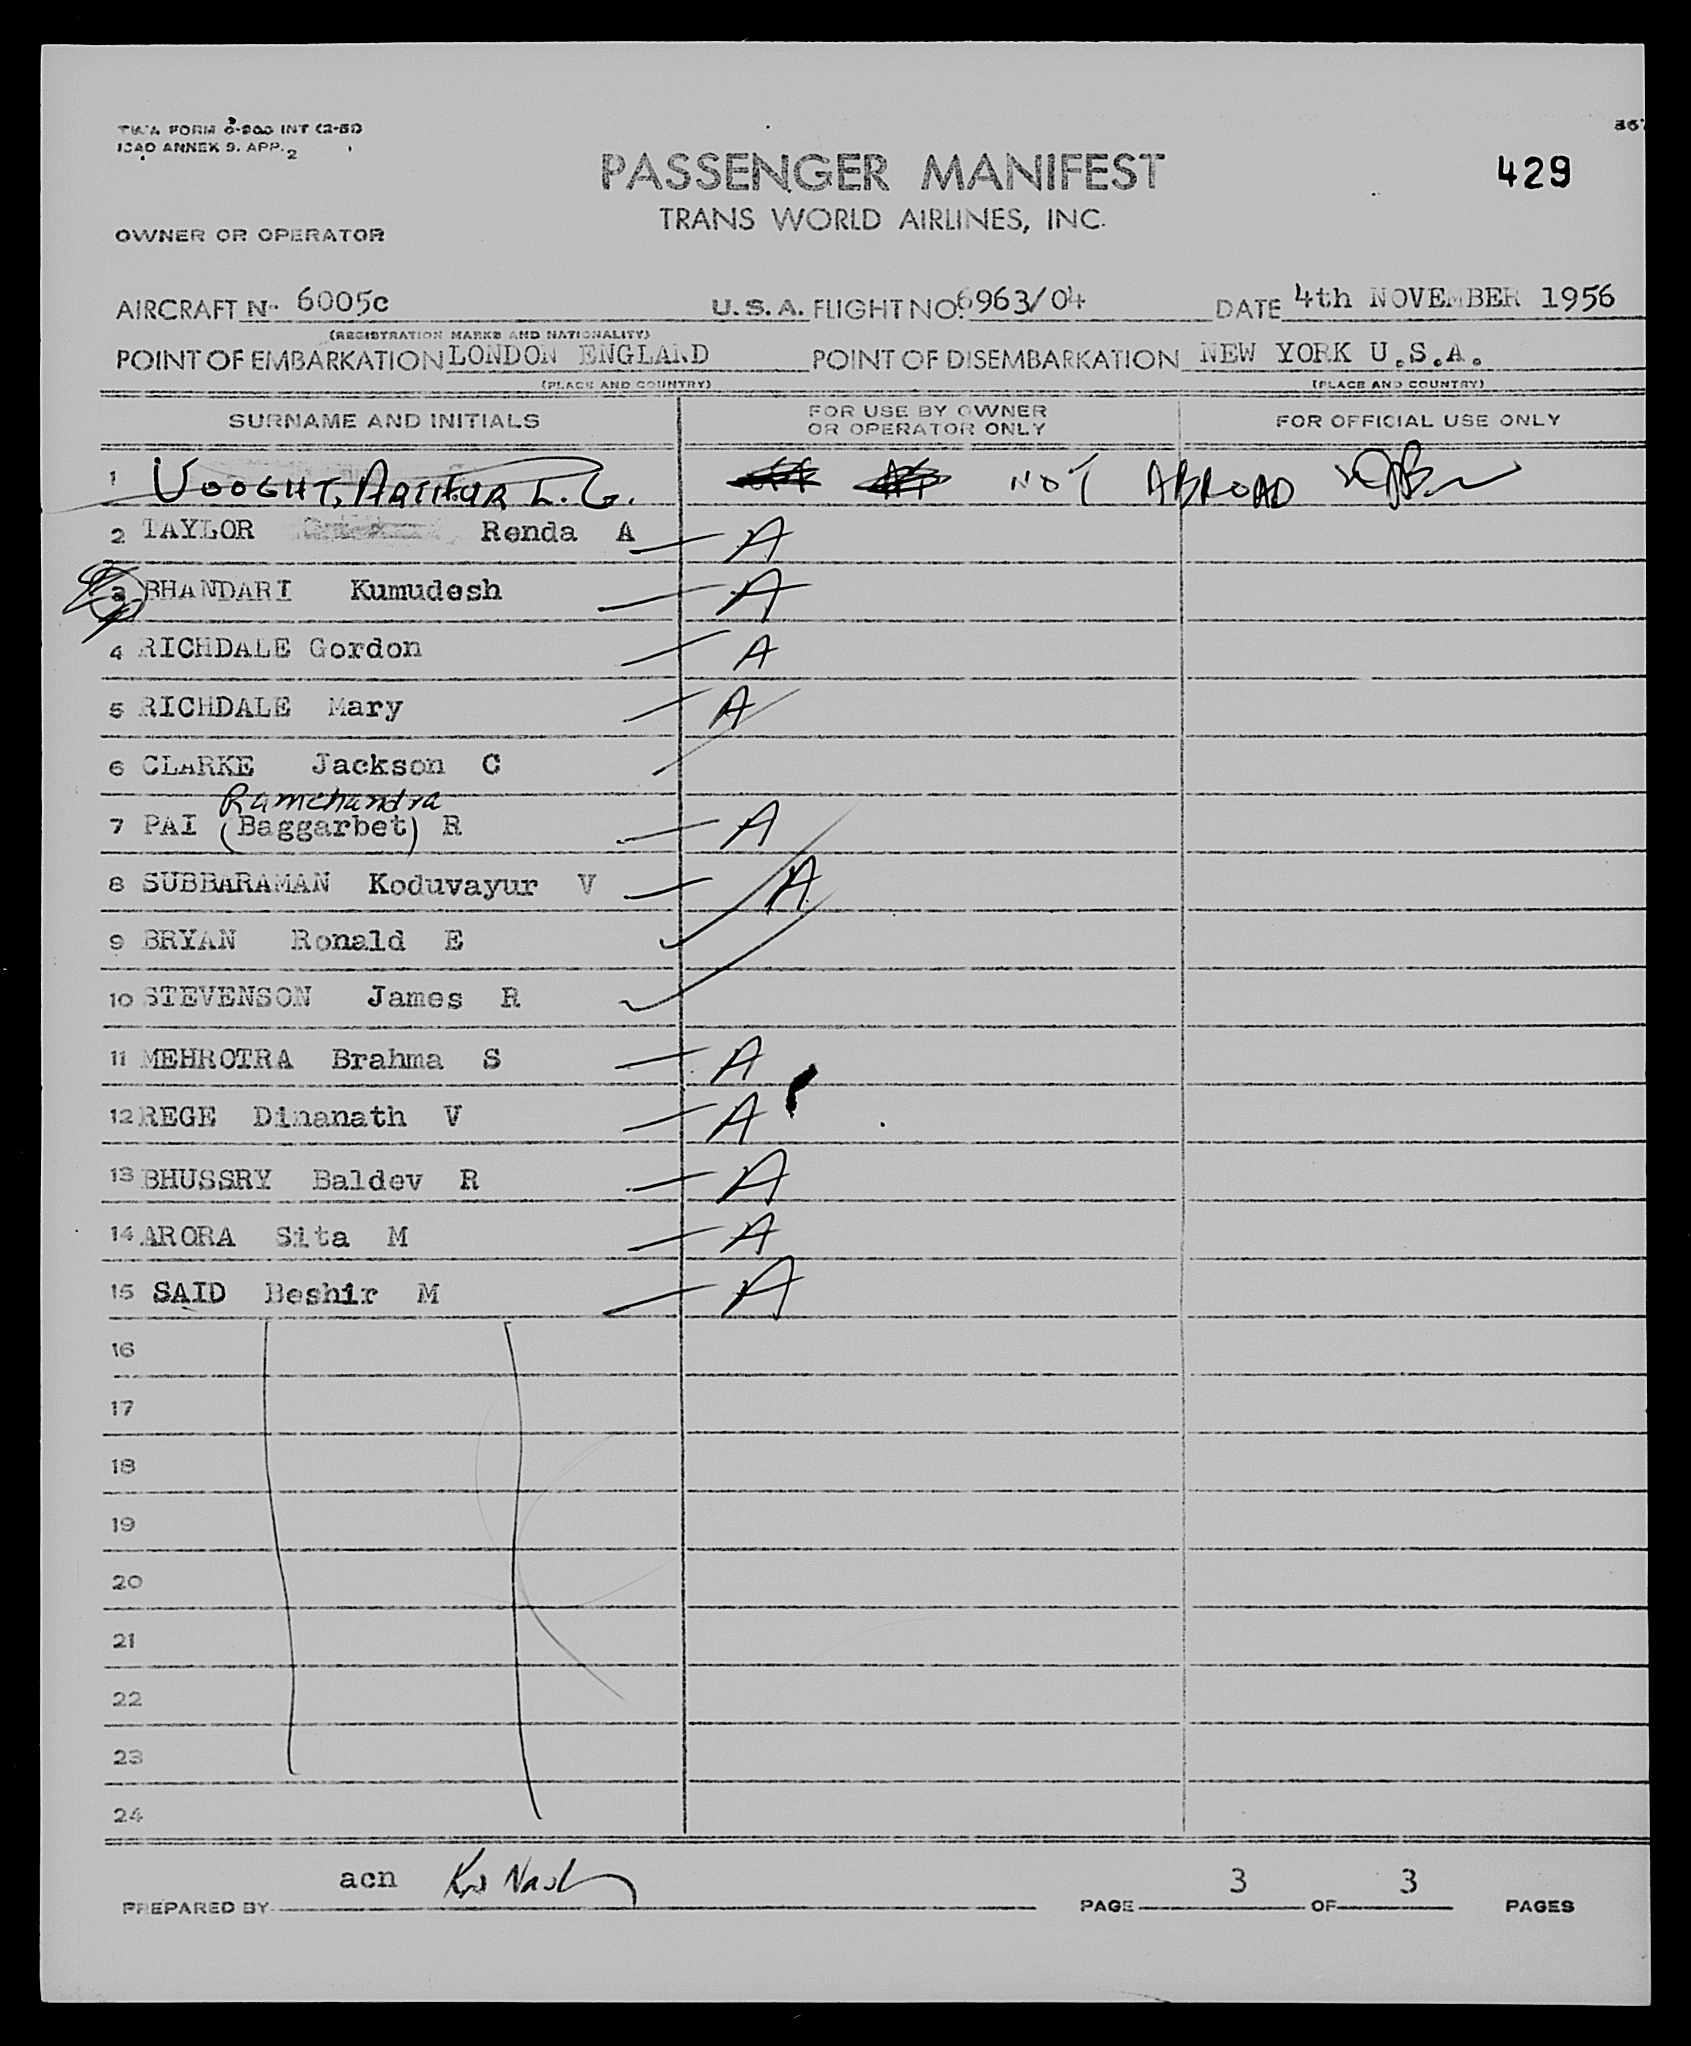 TWA FORM 0-900 INT (2-51)
ICAO ANNEX 9. APP. 2
367
PASSENGER MANIFEST
429
TRANS WORLD AIRLINES, INC.
OWNER OR OPERATOR
AIRCRAFT No. 6005c U.S.A. FLIGHT NO. 6963/04 DATE 4th NOVEMBER 1956
(REGISTRATION MARKS AND NATIONALITY)
POINT OF EMBARKATION LONDON ENGLAND POINT OF DISEMBARKATION NEW YORK U.S.A.
(PLACE AND COUNTRY) (PLACE AND COUNTRY)
SURNAME AND INITIALS FOR USE BY OWNER OR OPERATOR ONLY FOR OFFICIAL USE ONLY
1 VOOGHT, ARTHUR L. G. NOT ABROAD
2 TAYLOR Renda A — A
3 BHANDARI Kumudesh — A
4 RICHDALE Gordon — A
5 RICHDALE Mary — A
6 CLARKE Jackson C
Ramchandra
7 PAI (Baggarbet) R — A
8 SUBBARAMAN Koduvayur V — A
9 BRYAN Ronald E
10 STEVENSON James R
11 MEHROTRA Brahma S — A
12 REGE Dinanath V — A
13 BHUSSRY Baldev R — A
14 ARORA Sita M — A
15 SAID Beshir M — A
16
17
18
19
20
21
22
23
24
PREPARED BY acn PAGE 3 OF 3 PAGES